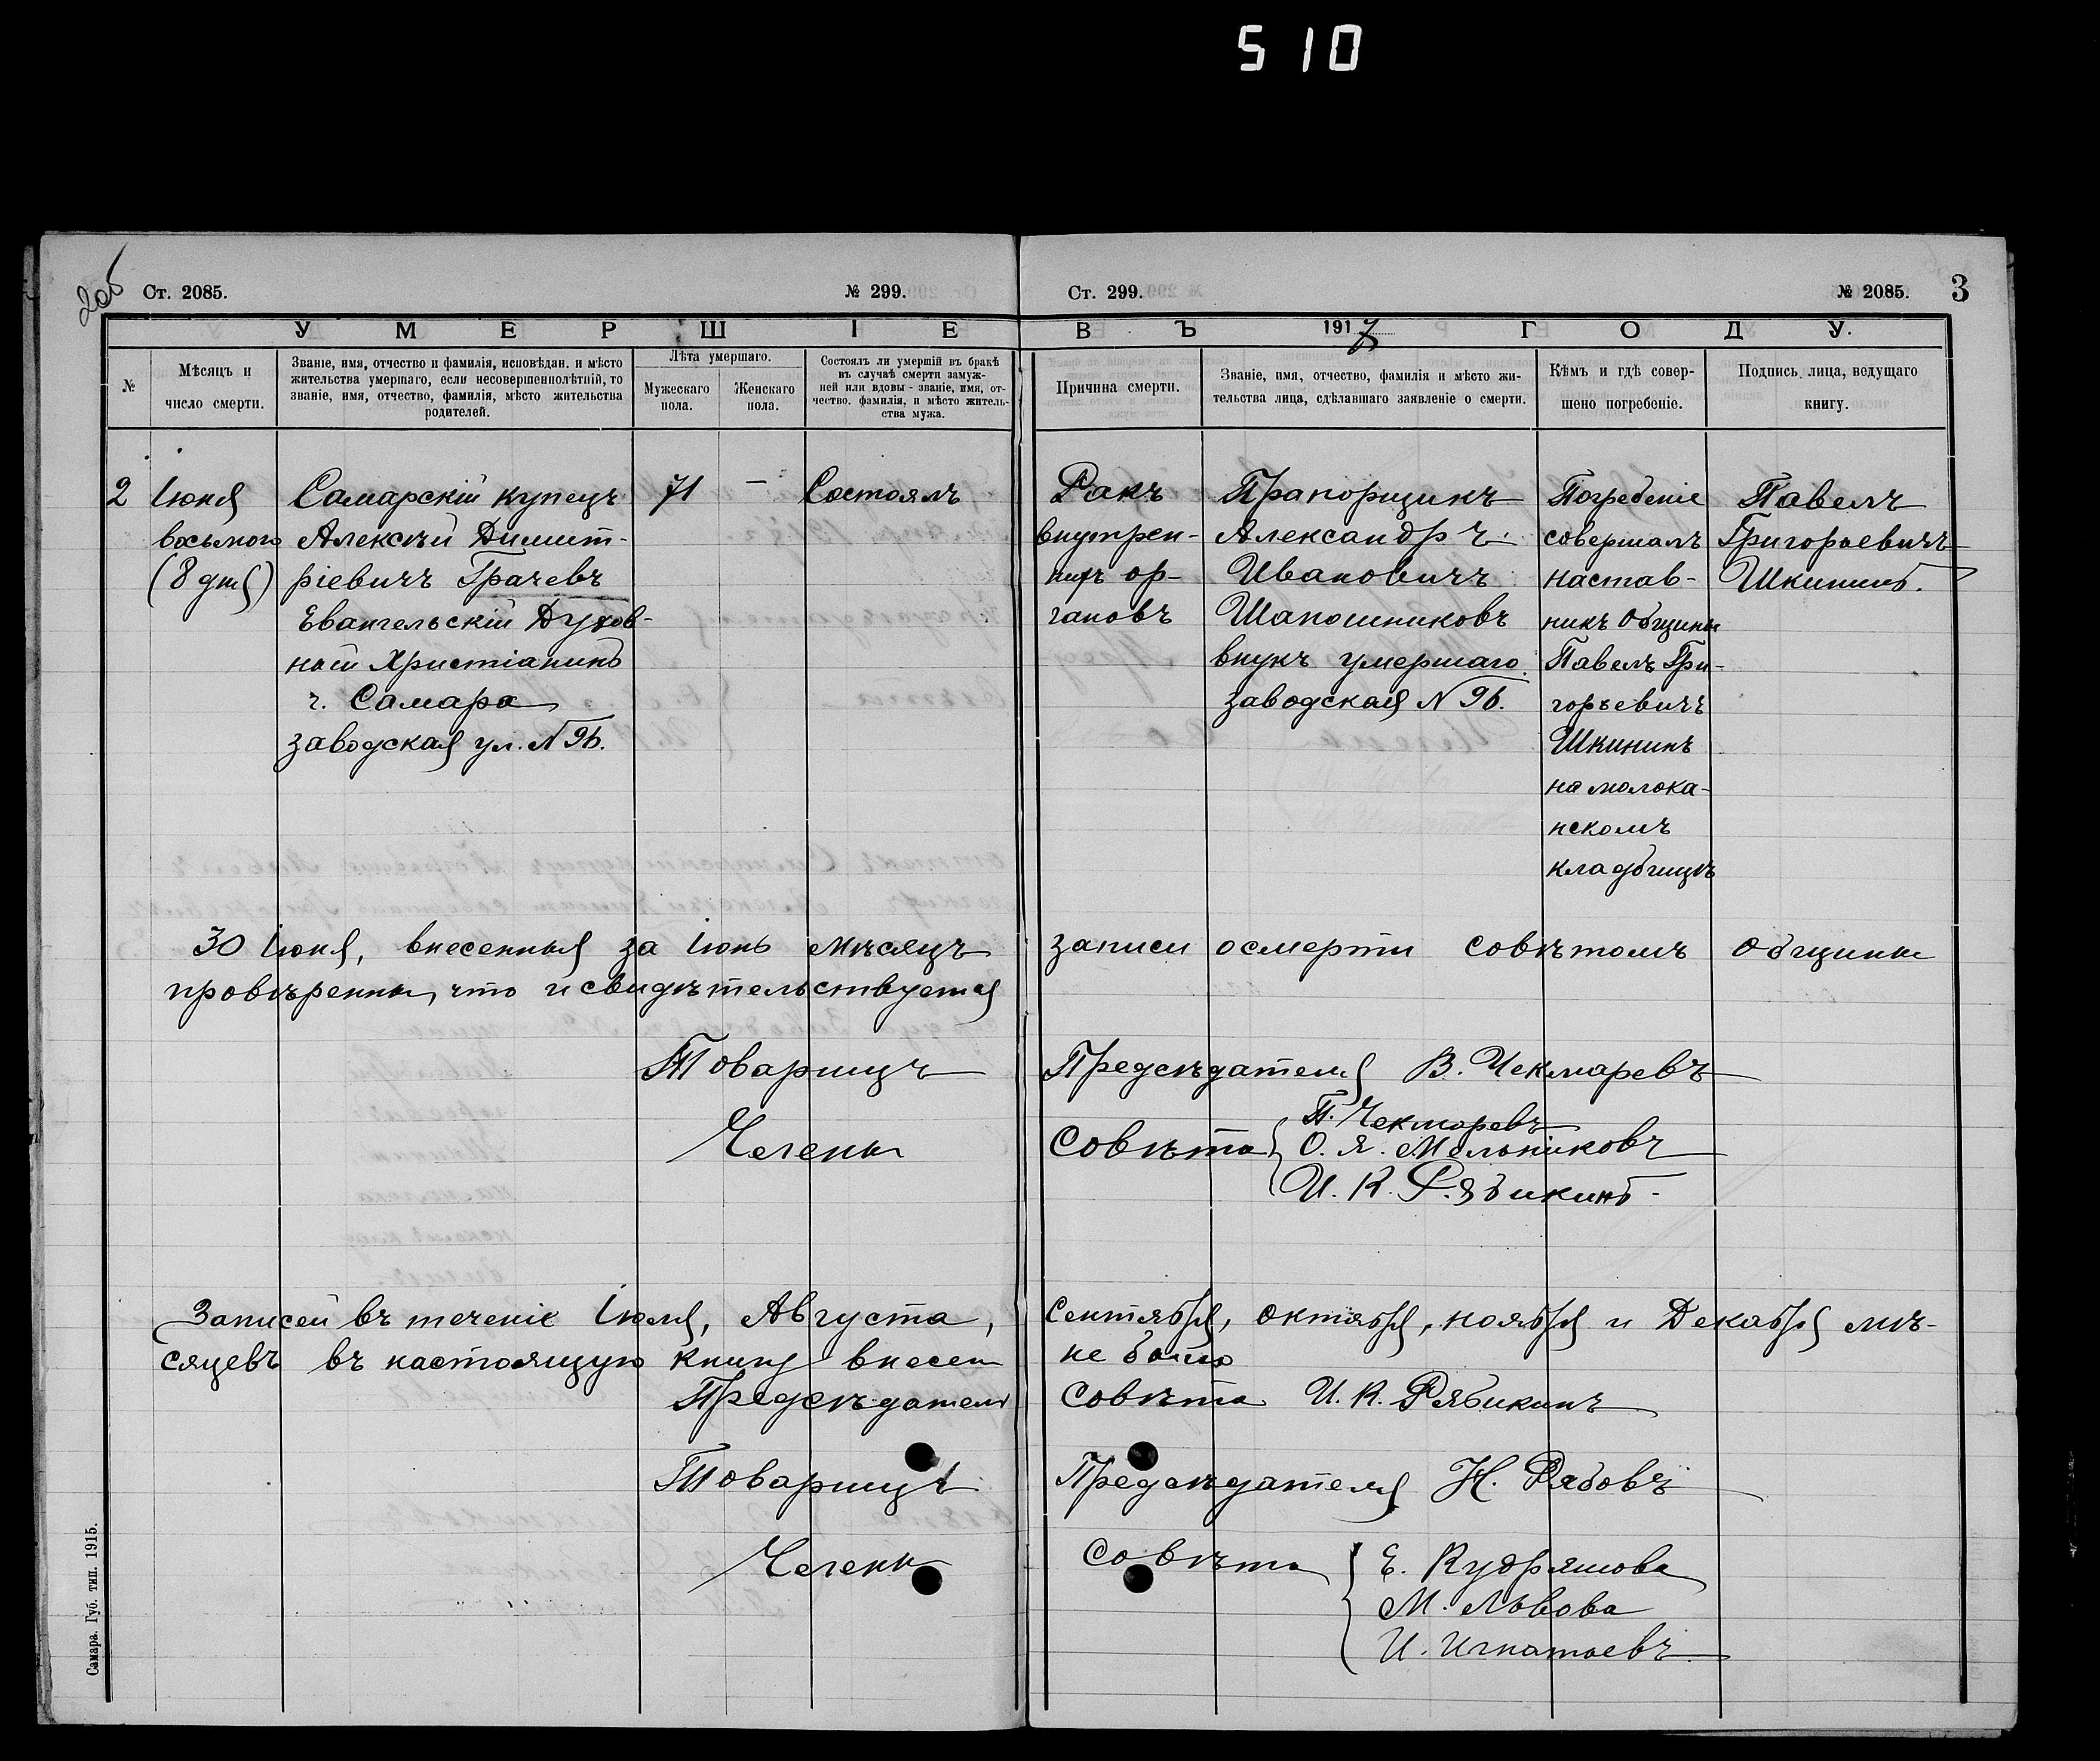 510
Ст. 2085.
№ 299.
Ст. 299.
№ 2085.
3
УМЕРШІЕ ВЪ 1917 ГОДУ.
№
Мѣсяцъ и
число смерти.
Званіе, имя, отчество и фамилія, исповѣдан. и мѣсто
жительства умершаго, если несовершеннолѣтній, то
званіе, имя, отчество, фамилія, мѣсто жительства
родителей.
Лѣта умершаго.
Мужескаго
пола.
Женскаго
пола.
Состоялъ ли умершій въ бракѣ
въ случаѣ смерти замуж-
ней или вдовы - званіе, имя, от-
чество. фамилія, и мѣсто житель-
ства мужа.
Причина смерти.
Званіе, имя, отчество, фамилія и мѣсто жи-
тельства лица, сдѣлавшаго заявленіе о смерти.
Кѣмъ и гдѣ совер-
шено погребеніе.
Подпись лица, ведущаго
книгу.
2
Іюня
восьмого
(8 дня)
Самарскій купецъ
Алексѣй Димит-
ріевичъ Грачевъ
Евангельскій Духов-
ный Христіанинъ
г. Самара
заводская ул. N 96.
71
—
Состоялъ
Ракъ
внутрен-
нихъ ор-
гановъ
Прапорщикъ
Александръ
Ивановичъ
Шапошниковъ
внукъ умершаго
заводская N 96.
Погребеніе
совершалъ
настав-
никъ Общины
Павелъ Гри-
горьевичъ
Шкининъ
на молока-
нскомъ
кладбищѣ
Павелъ
Григорьевичъ
Шкининъ.
30 Іюня, внесенныя за Іюнь мѣсяцъ записи о смерти совѣтомъ общины
провѣрены, что и свидѣтельствуется
Товарищъ Предсѣдателя В. Чекмаревъ
Члены Совѣта
П. Чекмаревъ
О. Я. Мельниковъ
И. К. Рябикинъ.
Записей въ теченіе Іюля, Августа, Сентября, Октября, Ноября и Декабря мѣ-
сяцевъ въ настоящую книгу внесен не было
Предсѣдатель Совѣта И. К. Рябикинъ
Товарищъ Предсѣдателя Н. Рябовъ
Члены Совѣта
Е. Кудряшова
М. Львова
И. Игнатьевъ
Самара. Губ. тип. 1915.